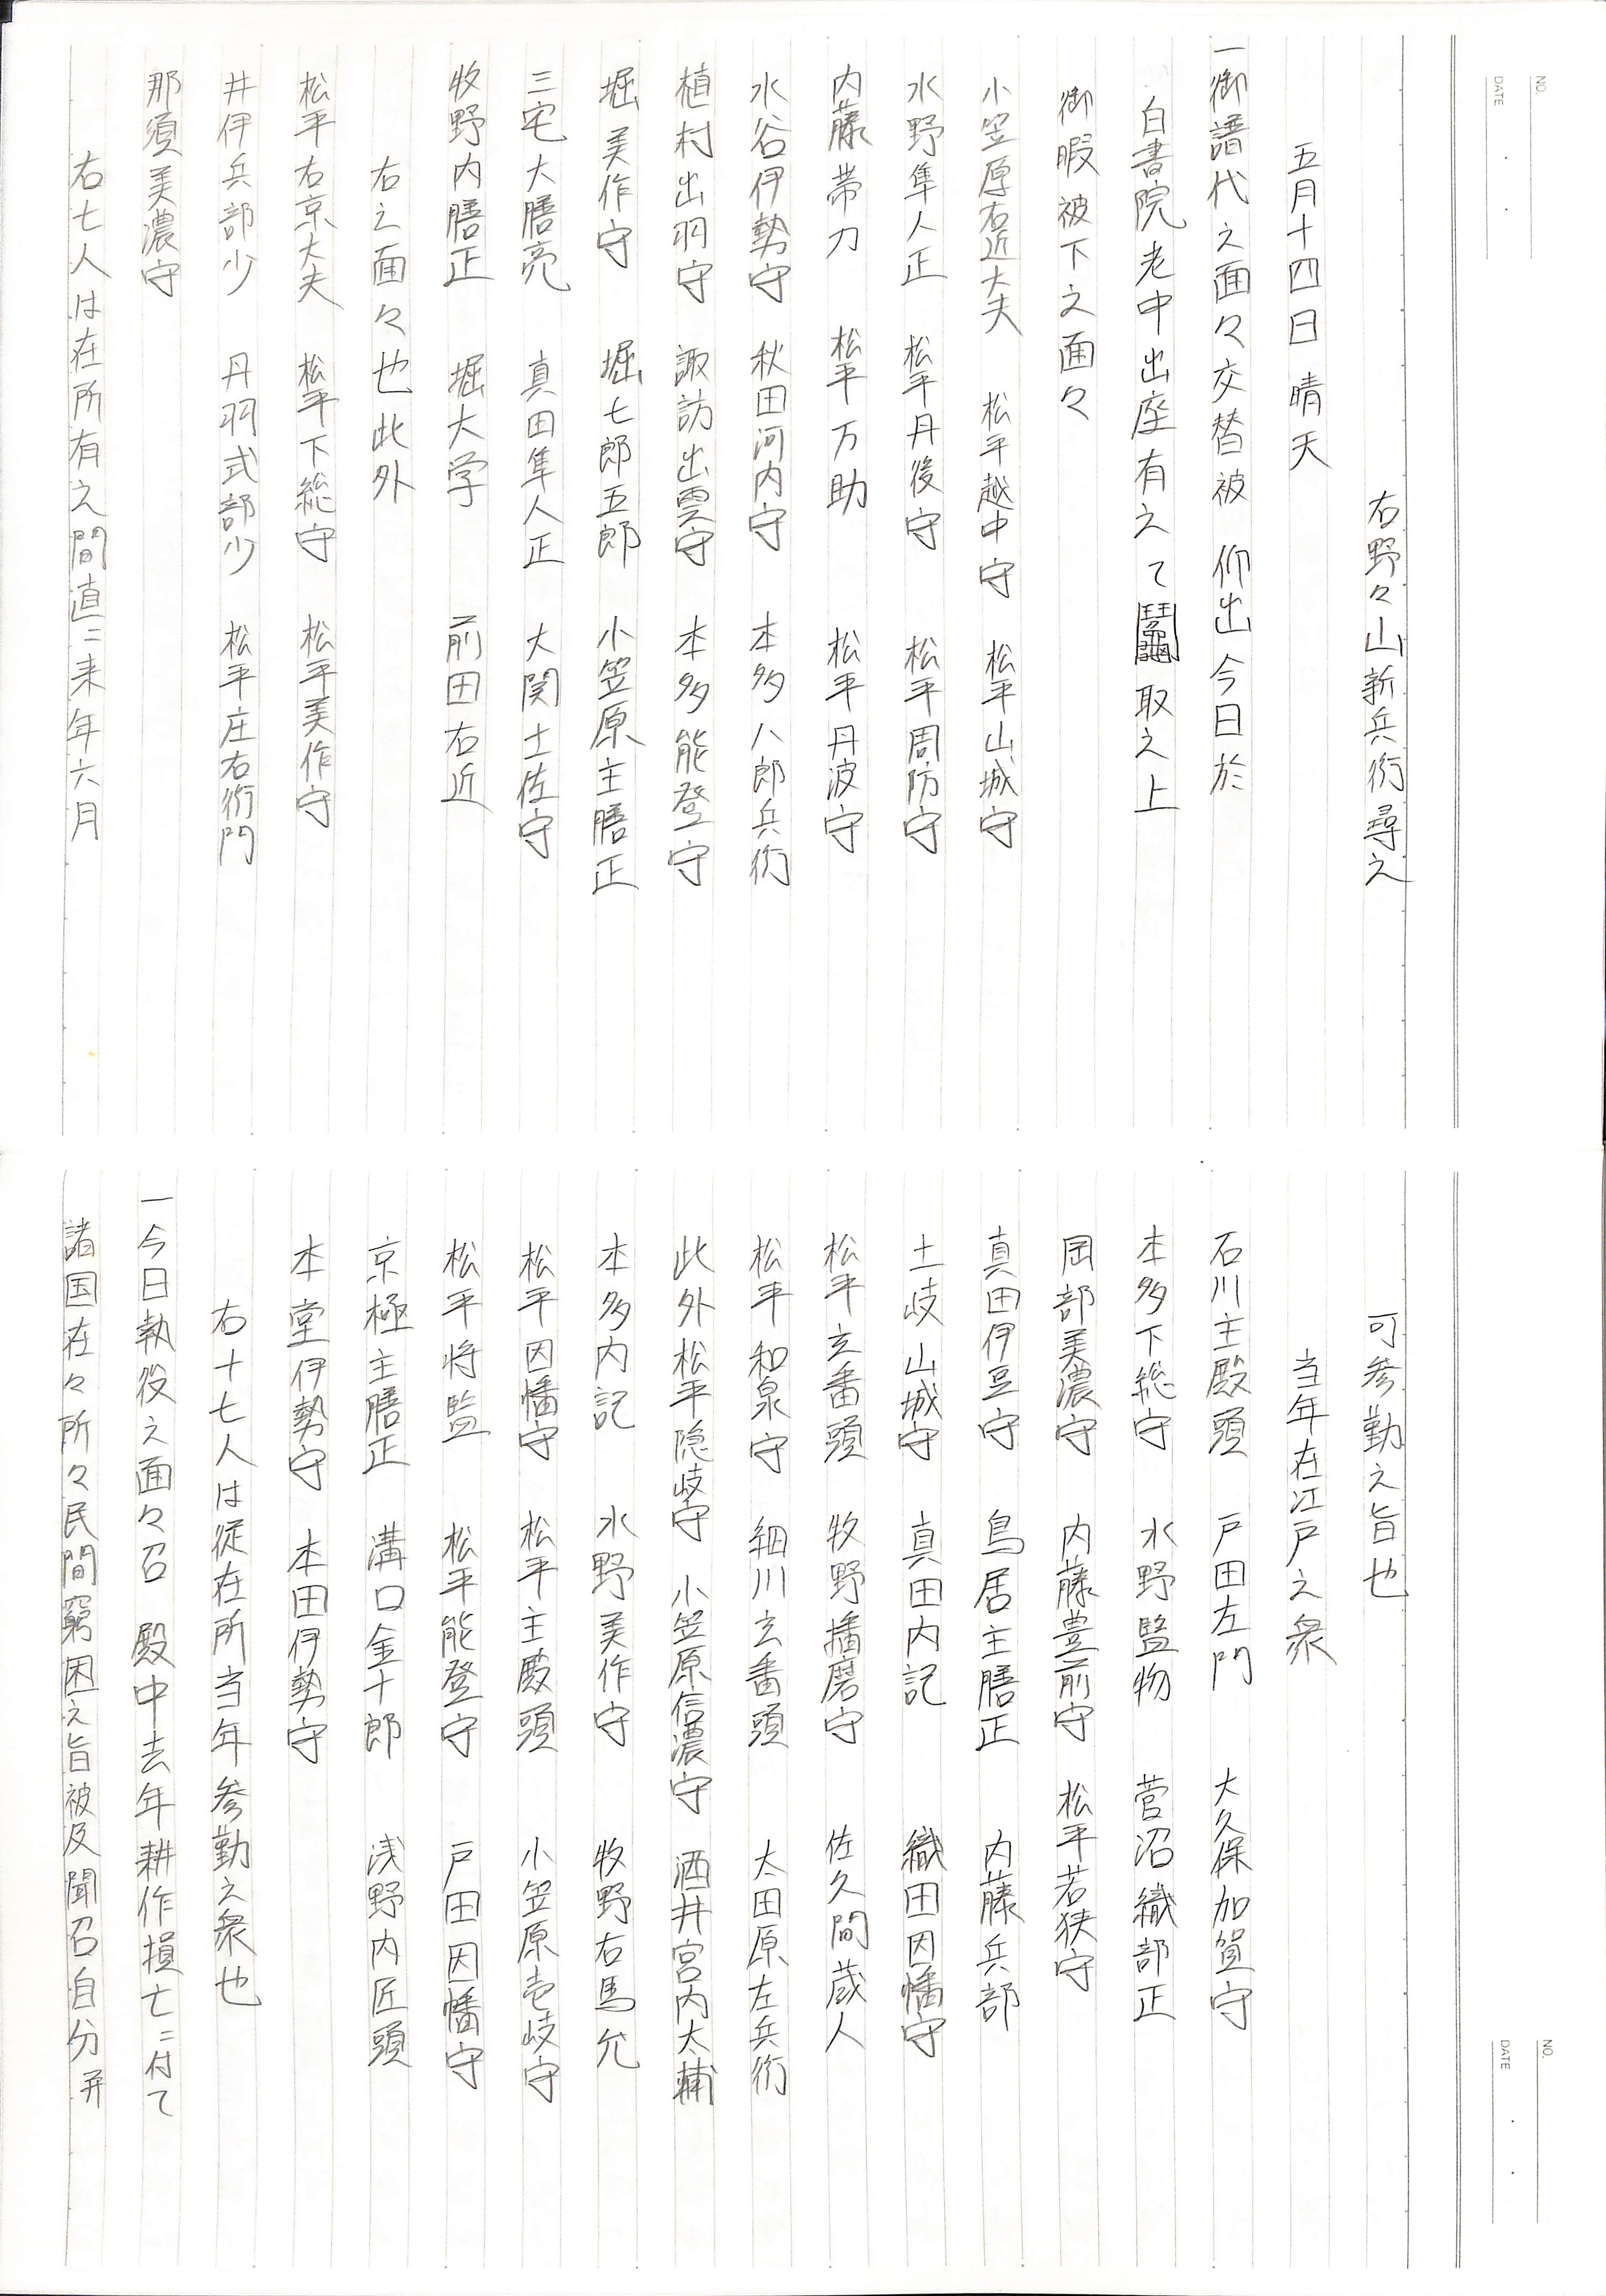 右野々山新兵衛尋之
五月十四日 晴天
一御譜代之面々交替被 仰出今日於
白書院老中出座有之て鬮取之上
御暇被下之面々
小笠原右近大夫 松平越中守 松平山城守
水野隼人正 松平丹後守 松平周防守
内藤帯刀 松平万助 松平丹波守
水谷伊勢守 秋田河内守 本多八郎兵衛
植村出羽守 諏訪出雲守 本多能登守
堀美作守 堀七郎五郎 小笠原主膳正
三宅大膳亮 真田隼人正 大関土佐守
牧野内膳正 堀大学 前田右近
右之面々也此外
松平右京大夫 松平下総守 松平美作守
井伊兵部少 丹羽式部少 松平庄右衛門
那須美濃守
右七人は在所有之間直ニ来年六月
可参勤之旨也
当年在江戸之衆
石川主殿頭 戸田左門 大久保加賀守
本多下総守 水野監物 菅沼織部正
岡部美濃守 内藤豊前守 松平若狭守
真田伊豆守 鳥居主膳正 内藤兵部
土岐山城守 真田内記 織田因幡守
松平玄番頭 牧野播磨守 佐久間蔵人
松平和泉守 細川玄番頭 太田原左兵衛
此外松平隠岐守 小笠原信濃守 酒井宮内太輔
本多内記 水野美作守 牧野右馬允
松平因幡守 松平主殿頭 小笠原壱岐守
松平将監 松平能登守 戸田因幡守
京極主膳正 溝口金十郎 浅野内匠頭
本堂伊勢守 本田伊勢守
右十七人は従在所当年参勤之衆也
一今日執役之面々召 殿中去年耕作損亡ニ付て
諸国在々所々民間窮困之旨被及聞召自分并
NO.
DATE
NO.
DATE